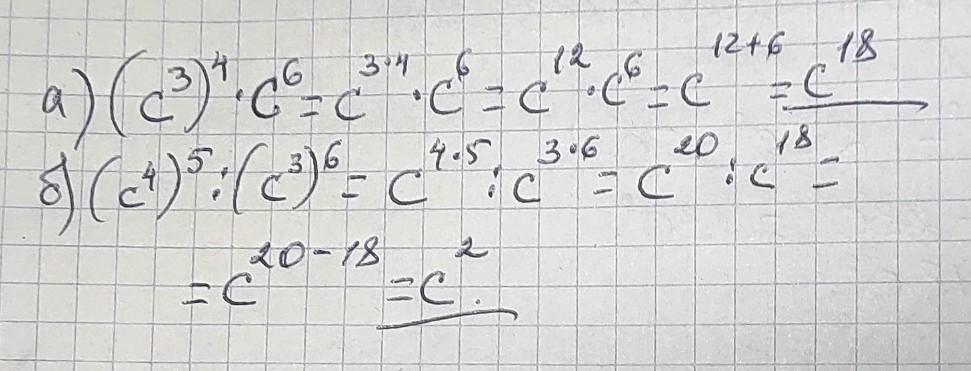 а) (c³)⁴ · c⁶ = c³·⁴ · c⁶ = c¹² · c⁶ = c¹²⁺⁶ = c¹⁸
б) (c⁴)⁵ : (c³)⁶ = c⁴·⁵ : c³·⁶ = c²⁰ : c¹⁸ =
= c²⁰⁻¹⁸ = c².